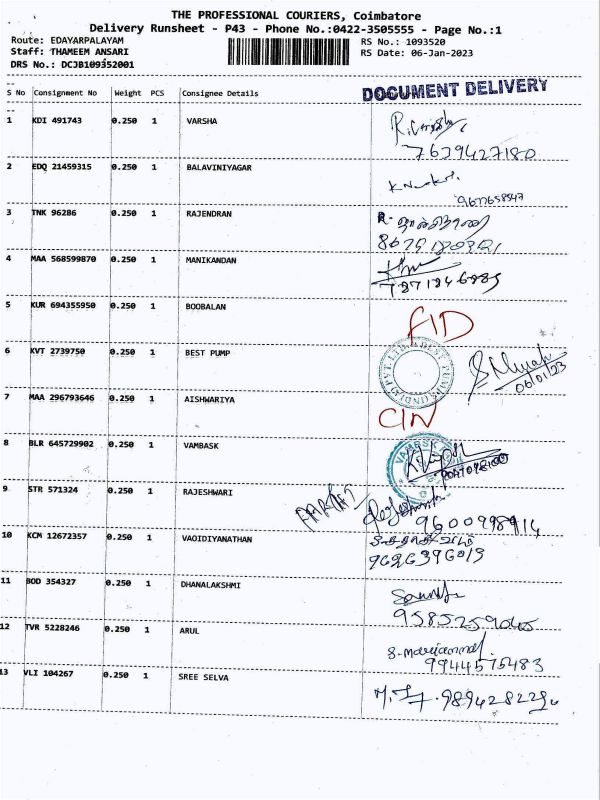 THE PROFESSIONAL COURIERS, Coimbatore
Delivery Runsheet - P43 - Phone No.:0422-3505555 - Page No.:1
Route: EDAYARPALAYAM
RS No.: 1093520
Staff: THAMEEM ANSARI
RS Date: 06-Jan-2023
DRS No.: DCJB109352001
S No Consignment No Weight PCS Consignee Details
DOCUMENT DELIVERY
1 KDI 491743 0.250 1 VARSHA
7639427180
2 EDQ 21459315 0.250 1 BALAVINIYAGAR
9677658547
3 TNK 96286 0.250 1 RAJENDRAN
R.
4 MAA 568599870 0.250 1 MANIKANDAN
5 KUR 694355950 0.250 1 BOOBALAN
FID
6 KVT 2739750 0.250 1 BEST PUMP
06/01/23
7 MAA 296793646 0.250 1 AISHWARIYA
CIN
8 BLR 645729902 0.250 1 VAMBASK
9 STR 571324 0.250 1 RAJESHWARI
9600998914
10 KCM 12672357 0.250 1 VAOIDIYANATHAN
9626396013
11 BOD 354327 0.250 1 DHANALAKSHMI
9585259045
12 TVR 5228246 0.250 1 ARUL
S. Mariammal
9944575483
13 VLI 104267 0.250 1 SREE SELVA
9894282296